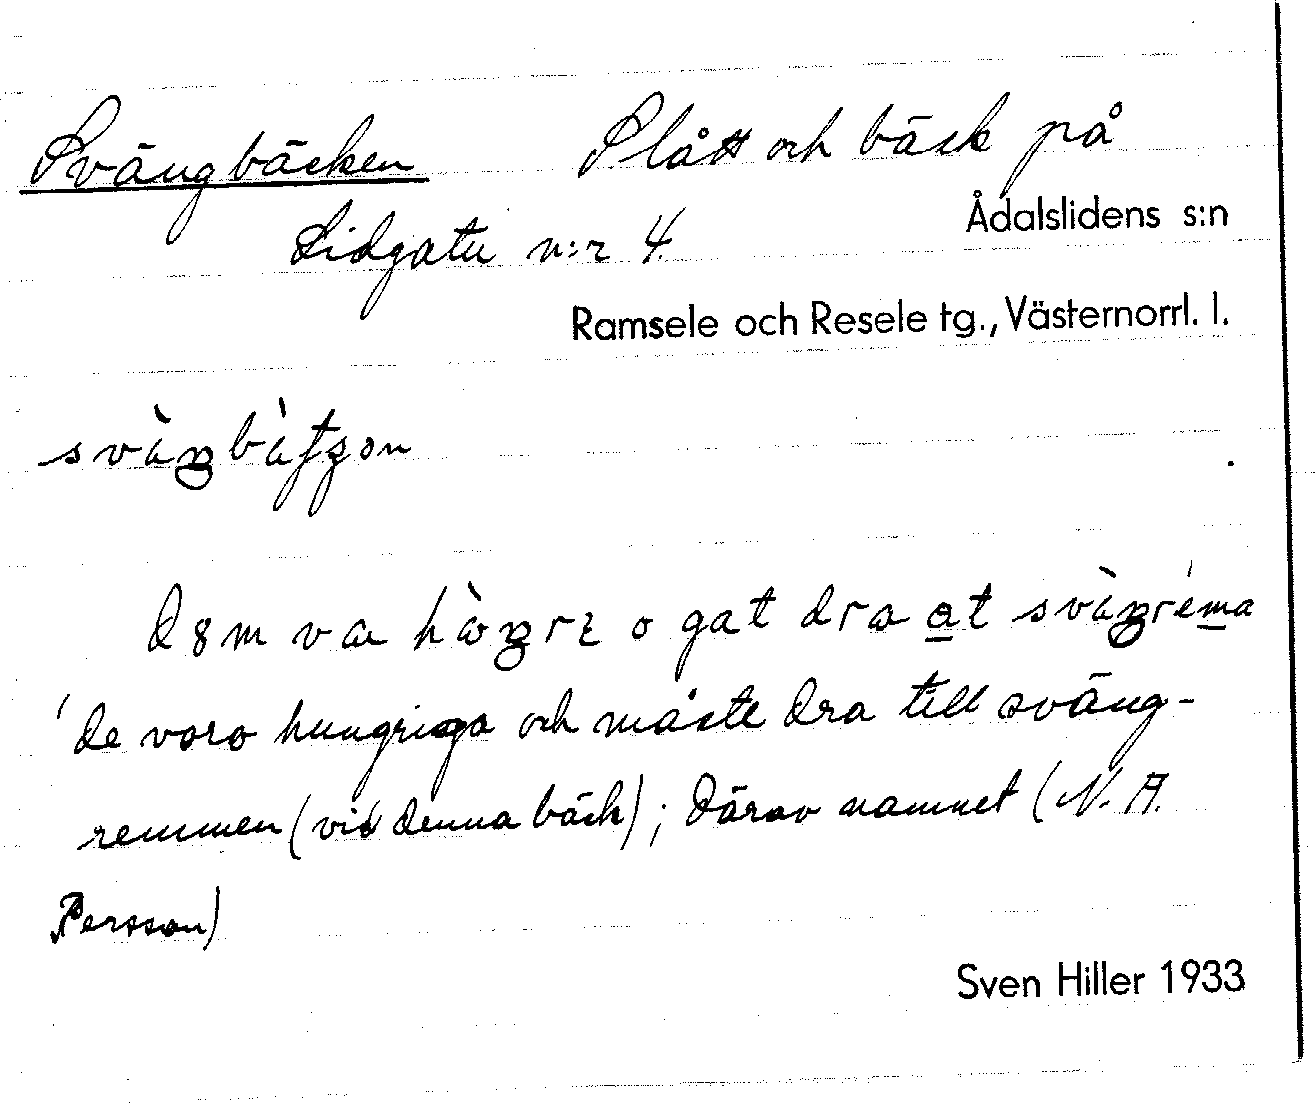 Svängbäcken Slått och bäck på
Ådalslidens s:n
Lidgatu n:r 4.
Ramsele och Resele tg., Västernorrl. l.
svàŋbàfʒon
dɞm va hàŋrɛ o gat dra at svàŋréma
'de voro hungriga och måste dra till sväng-
remmen (vid denna bäck); därav namnet (N. A.
Persson)
Sven Hiller 1933